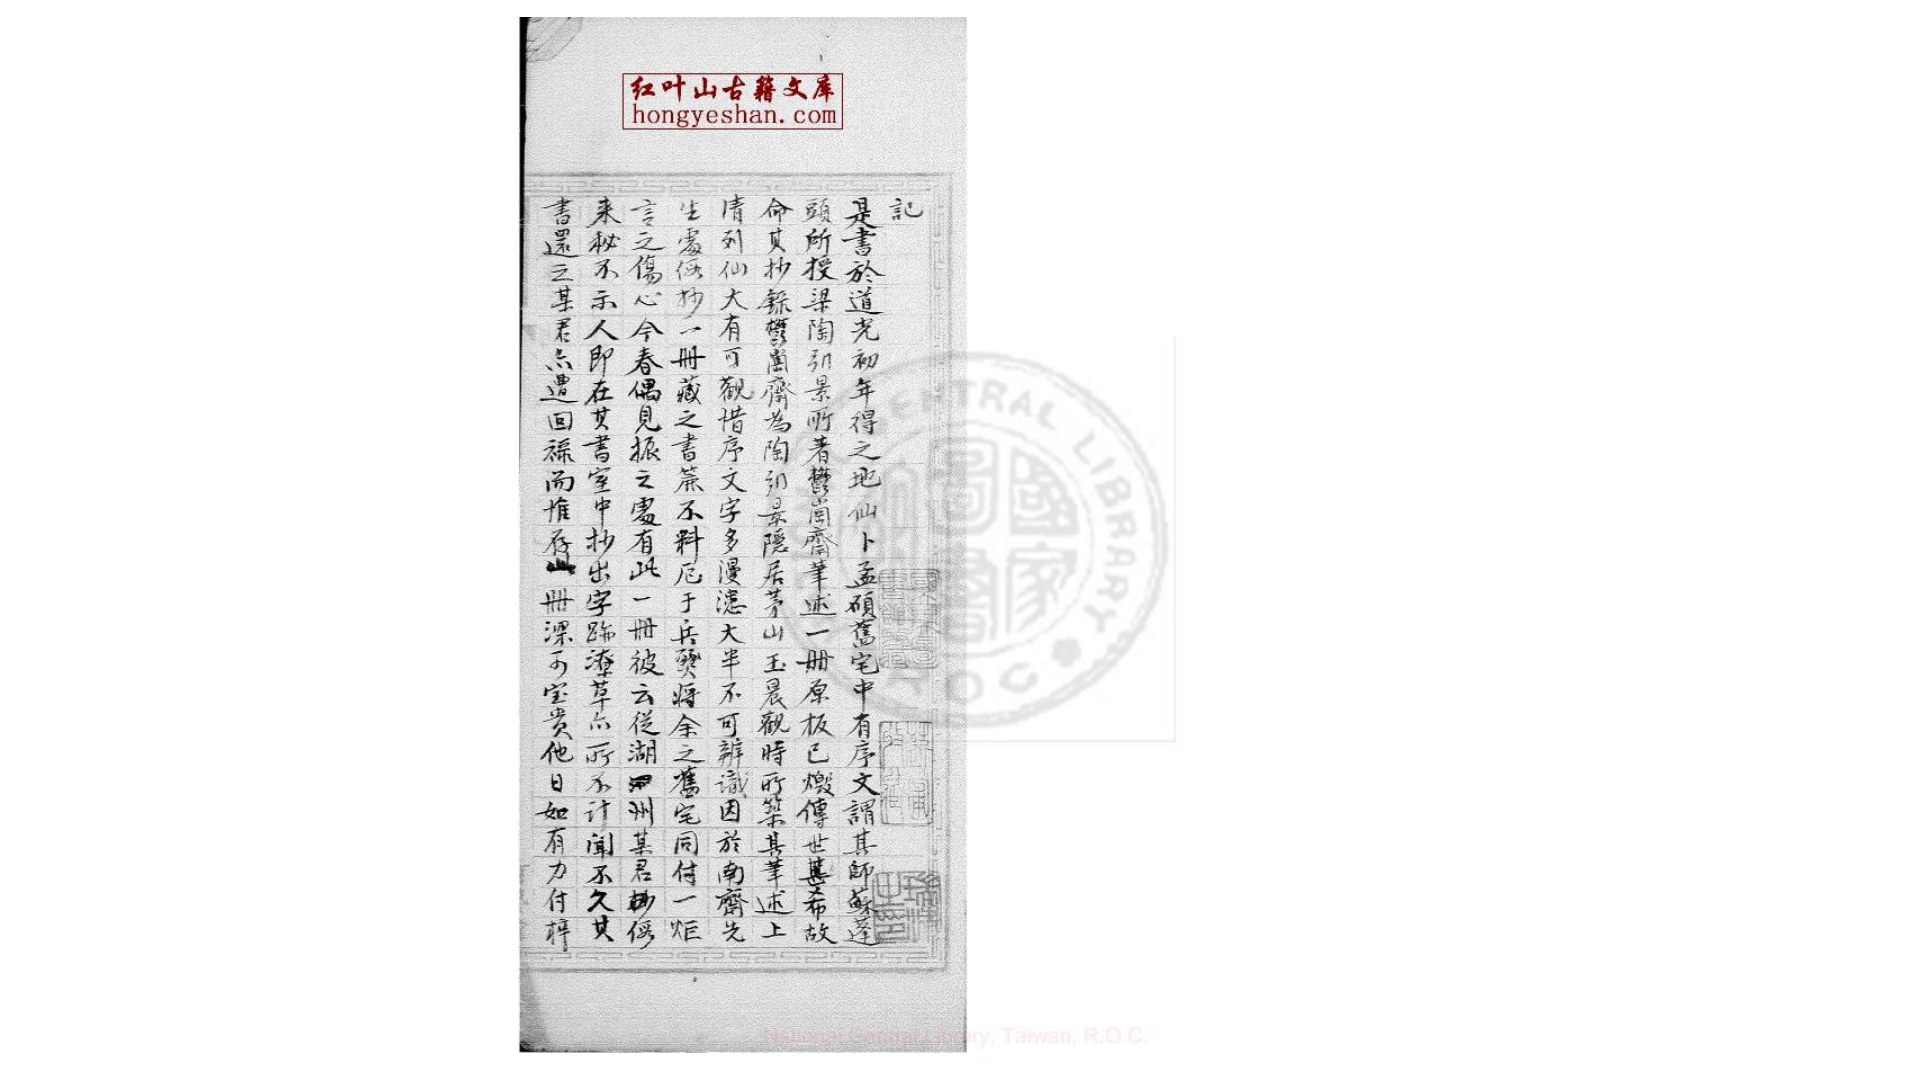 红叶山古籍文库
hongyeshan.com
記
是書於道光初年得之地仙卜孟碩舊宅中有序文謂其師蘇蓬
頭所授梁陶弘景所著鬱岡齋筆述一冊原板已燬傳世甚希故
命其抄錄鬱岡齋為陶弘景隱居茅山玉晨觀時所築其筆述上
清列仙大有可觀惜序文字多漫漶大半不可辨識因於南齋先
生處假抄一冊藏之書簏不料厄于兵燹將余之舊宅同付一炬
言之傷心今春偶見振之處有此一冊彼云從湖州某君抄假
来秘不示人即在其書室中抄出字跡潦草亦所不計聞不久其
書還之某君亦遭回祿而惟存此一冊深可宝贵他日如有力付梓
CENTRAL LIBRARY
R.O.C.
國家圖書館
National Central Library, Taiwan, R.O.C.